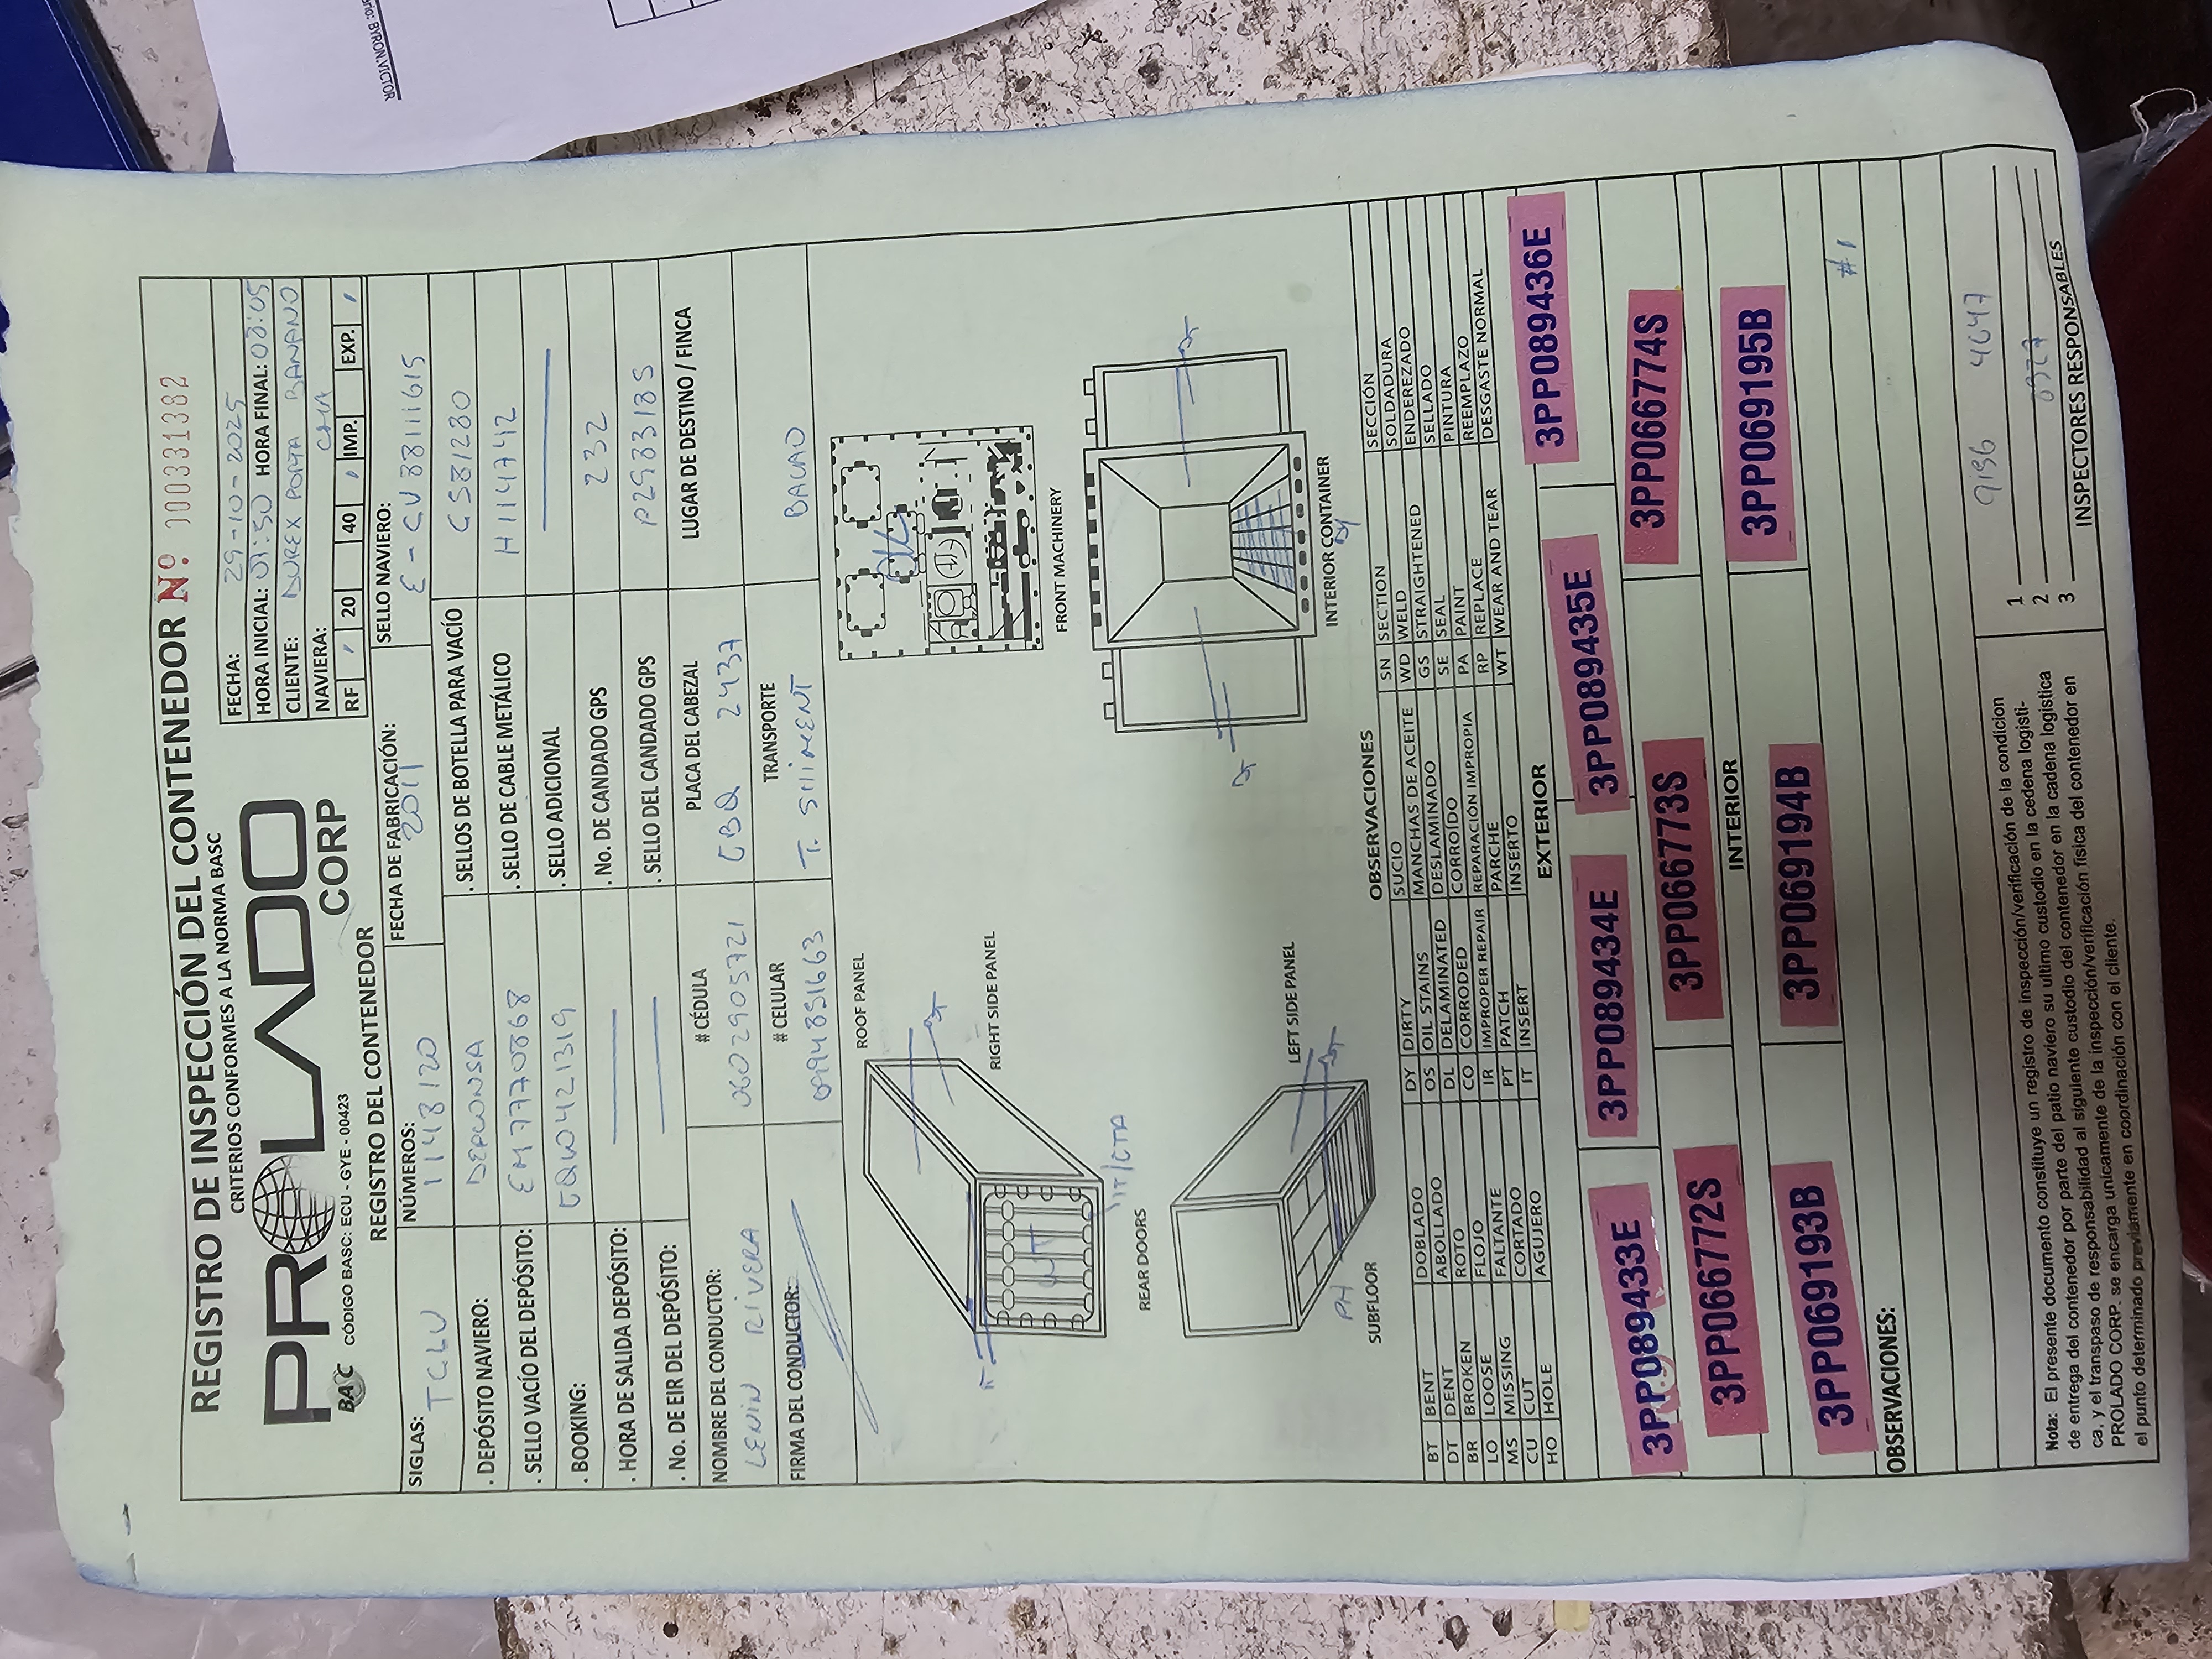 REGISTRO DE INSPECCIÓN DEL CONTENEDOR Nº. 000331382
CRITERIOS CONFORMES A LA NORMA BASC
PROLADO
CORP
BASC CÓDIGO BASC: ECU - GYE - 00423
FECHA: 29-10-2025
HORA INICIAL: 07:50 HORA FINAL: 08:05
CLIENTE: DUREX PORTA BANANO
NAVIERA: CMA
RF / 20 40 / IMP. EXP. /
REGISTRO DEL CONTENEDOR
SIGLAS: TGLU NÚMEROS: 1148120 FECHA DE FABRICACIÓN: 2011 SELLO NAVIERO: E-CV88111615
. DEPÓSITO NAVIERO: DEPCONSA . SELLOS DE BOTELLA PARA VACÍO GS81280
. SELLO VACÍO DEL DEPÓSITO: EM7770868 . SELLO DE CABLE METÁLICO H114742
. BOOKING: . SELLO ADICIONAL
. HORA DE SALIDA DEPÓSITO: . No. DE CANDADO GPS 232
. No. DE EIR DEL DEPÓSITO: . SELLO DEL CANDADO GPS P2983185
NOMBRE DEL CONDUCTOR: # CÉDULA PLACA DEL CABEZAL LUGAR DE DESTINO / FINCA
LENIN RIVERA 0602905721 2437
FIRMA DEL CONDUCTOR: # CELULAR TRANSPORTE
0994851663 T. BALAO
ROOF PANEL
OK
DT
RIGHT SIDE PANEL
WT
FRONT MACHINERY
IT/CTA
REAR DOORS
DT
DT
LEFT SIDE PANEL
DT
PH
SUBFLOOR
INTERIOR CONTAINER
DY
OBSERVACIONES
BT BENT DOBLADO DY DIRTY SUCIO SN SECTION SECCIÓN
DT DENT ABOLLADO OS OIL STAINS MANCHAS DE ACEITE WD WELD SOLDADURA
BR BROKEN ROTO DL DELAMINATED DESLAMINADO GS STRAIGHTENED ENDEREZADO
LO LOOSE FLOJO CO CORRODED CORROÍDO SE SEAL SELLADO
MS MISSING FALTANTE IR IMPROPER REPAIR REPARACIÓN IMPROPIA PA PAINT PINTURA
CU CUT CORTADO PT PATCH PARCHE RP REPLACE REEMPLAZO
HO HOLE AGUJERO IT INSERT INSERTO WT WEAR AND TEAR DESGASTE NORMAL
EXTERIOR
3PP089433E 3PP089434E 3PP089435E 3PP089436E
3PP066772S 3PP066773S 3PP066774S
INTERIOR
3PP069193B 3PP069194B 3PP069195B
#1
OBSERVACIONES:
Nota: El presente documento constituye un registro de inspección/verificación de la condicion
de entrega del contenedor por parte del patio naviero su ultimo custodio en la cedena logisti-
ca, y el transpaso de responsabilidad al siguiente custodio del contenedor en la cadena logistica
PROLADO CORP. se encarga unicamente de la inspección/verificación fisica del contenedor en
el punto determinado previamente en coordinación con el cliente.
1 9196 4647
2
3
INSPECTORES RESPONSABLES